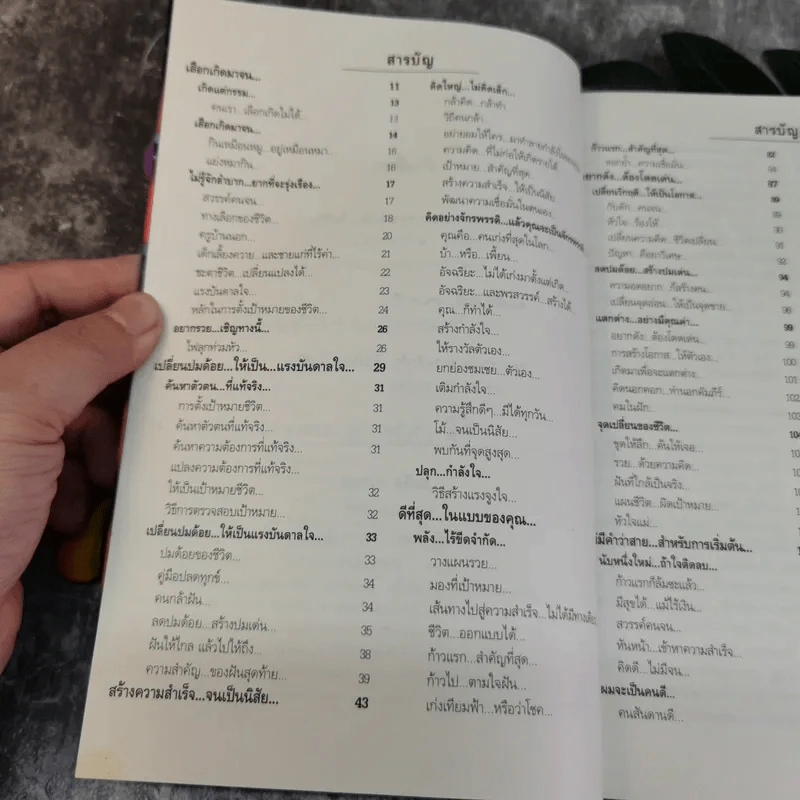 สารบัญ
เลือกเกิดมาจน...
เกิดแต่กรรม... 11
คนเรา...เลือกเกิดไม่ได้... 13
เลือกเกิดมาจน... 13
กินเหมือนหมู...อยู่เหมือนหมา... 14
แย่งหมากิน... 16
ไม่รู้จักลำบาก...ยากที่จะรุ่งเรือง... 17
สวรรค์คนจน... 17
ทางเลือกของชีวิต... 18
ครูบ้านนอก... 20
เด็กเลี้ยงควาย...และชายแก่ที่ไร้ค่า... 21
ชะตาชีวิต...เปลี่ยนแปลงได้... 22
แรงบันดาลใจ... 23
หลักในการตั้งเป้าหมายของชีวิต... 24
อยากรวย...เชิญทางนี้... 26
ไฟลุกท่วมหัว... 26
เปลี่ยนปมด้อย...ให้เป็น...แรงบันดาลใจ... 29
ค้นหาตัวตน...ที่แท้จริง... 31
การตั้งเป้าหมายชีวิต... 31
ค้นหาตัวตนที่แท้จริง... 31
ค้นหาความต้องการที่แท้จริง... 31
แปลงความต้องการที่แท้จริง...
ให้เป็นเป้าหมายชีวิต... 32
วิธีการตรวจสอบเป้าหมาย... 32
เปลี่ยนปมด้อย...ให้เป็นแรงบันดาลใจ... 33
ปมด้อยของชีวิต... 33
คู่มือปลดทุกข์... 34
คนกล้าฝัน... 34
ลดปมด้อย...สร้างปมเด่น... 35
ฝันให้ไกล แล้วไปให้ถึง... 38
ความสำคัญ...ของฝันสุดท้าย... 39
สร้างความสำเร็จ...จนเป็นนิสัย... 43
คิดใหญ่...ไม่คิดเล็ก...
กล้าคิด...กล้าทำ
วิถีคนกล้า
อย่ายอมให้ใคร...มาทำลายกำลังใจ
ความคิด...ที่ไม่ก่อให้เกิดรายได้
เป้าหมาย...สำคัญที่สุด
สร้างความสำเร็จ...ให้เป็นนิสัย
พัฒนาความเชื่อมั่นในตนเอง
คิดอย่างจักรพรรดิ...แล้วคุณจะเป็นจักรพรรดิ
คุณคือ...คนเก่งที่สุดในโลก...
บ้า...หรือ...เพี้ยน...
อัจฉริยะ...ไม่ได้เก่งมาตั้งแต่เกิด...
อัจฉริยะ...และพรสวรรค์...สร้างได้
คุณ...ก็ทำได้...
สร้างกำลังใจ...
ให้รางวัลตัวเอง...
ยกย่องชมเชย...ตัวเอง...
เติมกำลังใจ...
ความรู้สึกดีๆ...มีได้ทุกวัน...
โม้...จนเป็นนิสัย...
พบกันที่จุดสูงสุด...
ปลุก...กำลังใจ...
วิธีสร้างแรงจูงใจ
ดีที่สุด...ในแบบของคุณ...
พลัง...ไร้ขีดจำกัด...
วางแผนรวย...
มองที่เป้าหมาย...
เส้นทางไปสู่ความสำเร็จ...ไม่ได้มีทางเดียว
ชีวิต...ออกแบบได้...
ก้าวแรก...สำคัญที่สุด...
ก้าวไป...ตามใจฝัน...
เก่งเทียมฟ้า...หรือว่าโชค...
สารบัญ
ก้าวแรก...สำคัญที่สุด...
ตอกย้ำ...ความเชื่อมั่น
อยากดัง...ต้องโดดเด่น... 87
เปลี่ยนวิกฤติ...ให้เป็นโอกาส... 89
กับดัก...คนจน... 89
หัวใจ...ร้องไห้ 90
เปลี่ยนความคิด...ชีวิตเปลี่ยน
ปัญหา...คือยาวิเศษ...
ลดปมด้อย...สร้างปมเด่น... 94
ความอดอยาก...ก็สร้างคน...
เปลี่ยนจุดอ่อน...ให้เป็นจุดขาย...
แตกต่าง...อย่างมีคุณค่า... 99
อยากดัง...ต้องโดดเด่น... 99
การสร้างโอกาส...ให้ตัวเอง... 100
เกิดมาเพื่อจะแตกต่าง... 101
คิดนอกคอก...ทำนอกคัมภีร์... 102
คมในฝัก... 103
จุดเปลี่ยนของชีวิต... 104
ขุดให้ลึก...ค้นให้เจอ...
รวย...ด้วยความคิด...
ฝันที่ใกล้เป็นจริง...
แผนชีวิต...ผิดเป้าหมาย...
หัวใจแม่...
ไม่มีคำว่าสาย...สำหรับการเริ่มต้น...
นับหนึ่งใหม่...ถ้าใจติดลบ...
ก้าวแรกก็ล้มซะแล้ว...
มีสุขได้...แม้ไร้เงิน...
สวรรค์คนจน...
หันหน้า...เข้าหาความสำเร็จ...
คิดดี...ไม่มีจน...
ผมจะเป็นคนดี...
คนสันดานดี...